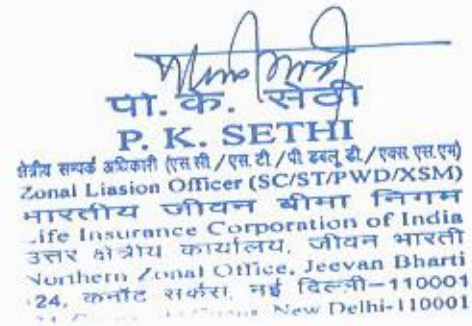 पी. के. सेठी
P. K. SETHI
क्षेत्रीय सम्पर्क अधिकारी (एस.सी./एस.टी./पी डबलू डी./एक्स एस.एम)
Zonal Liasion Officer (SC/ST/PWD/XSM)
भारतीय जीवन बीमा निगम
Life Insurance Corporation of India
उत्तर क्षेत्रीय कार्यालय, जीवन भारती
Northern Zonal Office, Jeevan Bharti
124, कनॉट सर्कस, नई दिल्ली-110001
New Delhi-110001